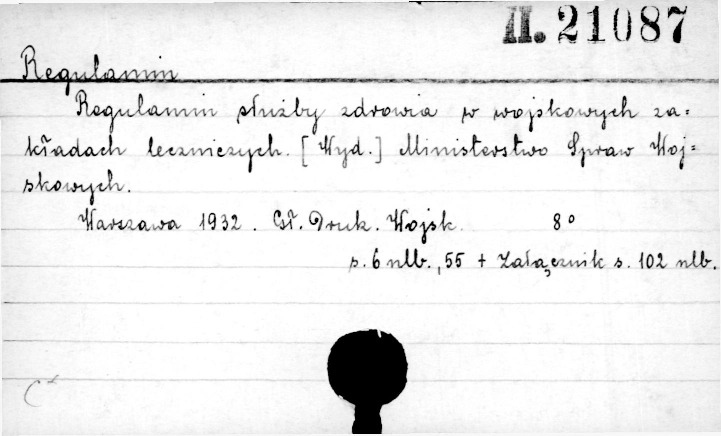 II. 21087
Regulamin
Regulamin służby zdrowia w wojskowych za-
kładach leczniczych. [Wyd.] Ministerstwo Spraw Woj-
skowych.
Warszawa 1932. Gł. Druk. Wojsk. 8°
s. 6 nlb., 55 + Załącznik s. 102 nlb.